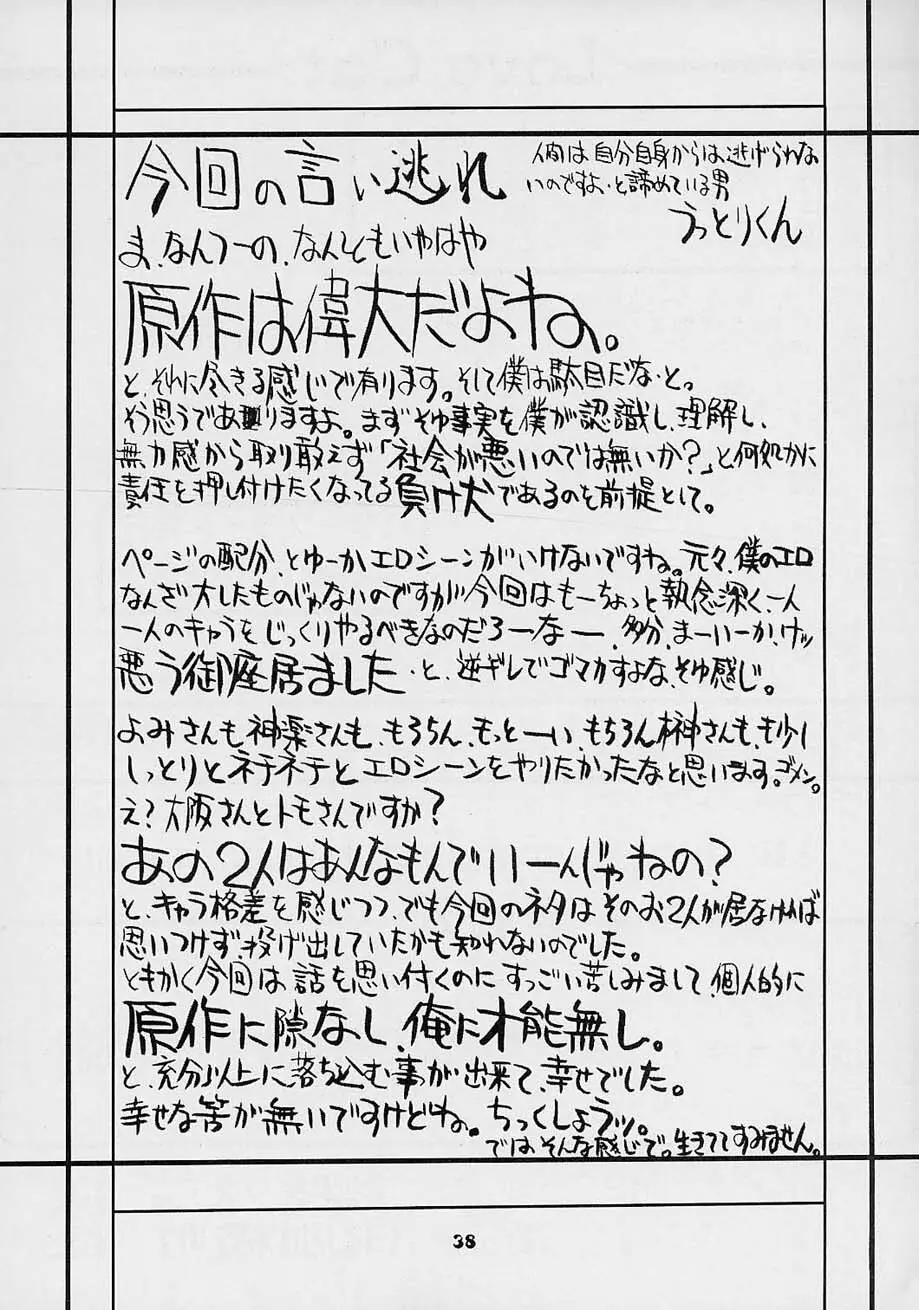 今回の言い逃れ
人間は自分自身からは逃げられな
いのですよ・と諦めている男
うっとりくん
ま、なんつーの、なんともいやはや
原作は偉大だよね。
と、それに尽きる感じで有ります。そして僕は駄目だな・と。
そう思うであ りますよ。まずそゆ事実を僕が認識し、理解し、
無力感から取り敢えず「社会が悪いのでは無いか?」と何処かに
責任を押し付けたくなってる負け犬であるのを前提として。
ページの配分、とゆーかエロシーンがいけないですね。元々、僕のエロ
なんざ大したものじゃないのですが今回はもーちょっと執念深く、一人
一人のキャラをじっくりやるべきなのだろーなー、多分、まーいーか、ケッ
悪う御座居ました・と、逆ギレでゴマカすよな、そゆ感じ。
よみさんも、神楽さんも、もろちん、もっとーい、もちろん榊さんも、も少し
しっとりとネチネチとエロシーンをやりたかったなと思います。ゴメン。
え?大阪さんとトモさんですか?
あの2人はあんなもんでいーんじゃねの?
と、キャラ格差を感じつつ、でも今回のネタはそのお2人が居なければ
思いつけず、投げ出していたかも知れないのでした。
ともかく今回は話を思い付くのにすっごい苦しみまして、個人的に
原作に隙なし、俺に才能無し。
と、充分以上に落ち込む事が出来て、幸せでした。
幸せな筈が無いですけどね。ちっくしょうッ。
では、そんな感じで。生きててすみません。
38